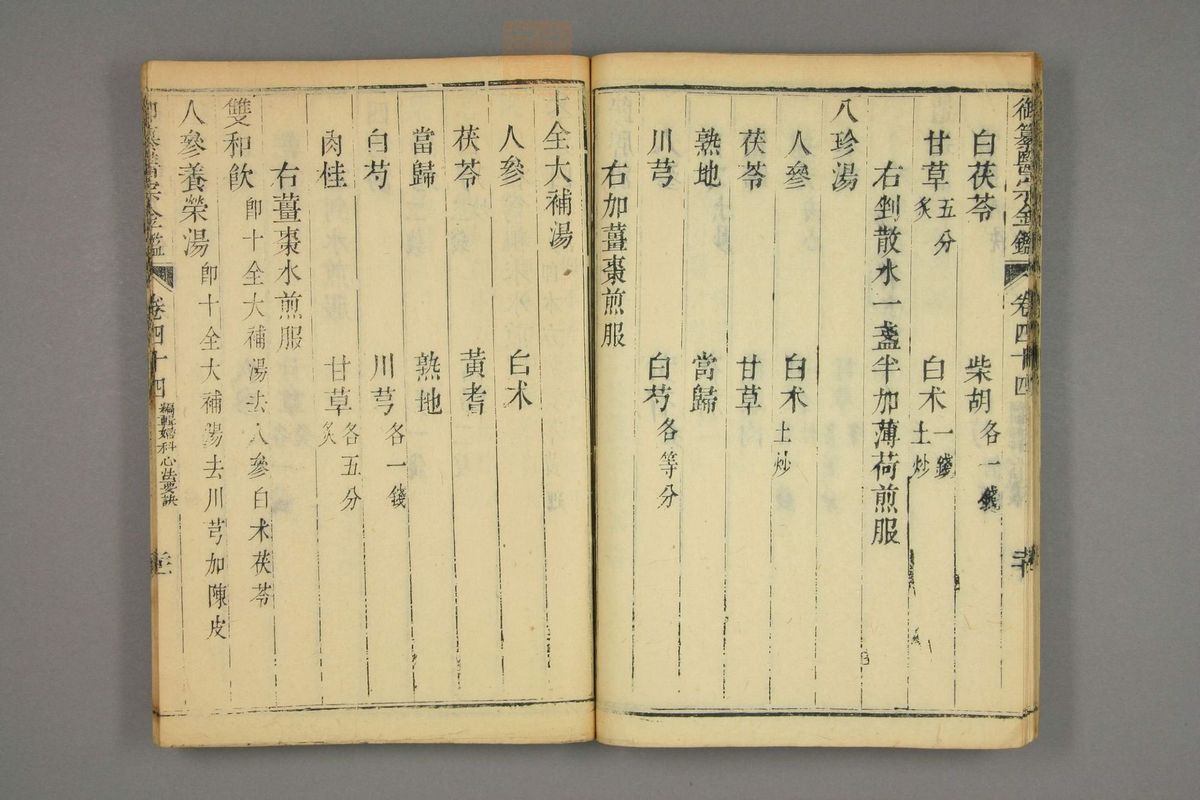 御纂醫宗金鑑 卷四十四 二十
白茯苓 柴胡各一錢
甘草五分炙 白朮一錢土炒
右剉散水一盞半加薄荷煎服
八珍湯
人參 白朮土炒
茯苓 甘草
熟地 當歸
川芎 白芍各等分
右加薑棗煎服
十全大補湯
人參 白朮
茯苓 黃耆
當歸 熟地
白芍 川芎各一錢
肉桂 甘草炙各五分
右薑棗水煎服
雙和飲即十全大補湯去人參白朮茯苓
人參養榮湯即十全大補湯去川芎加陳皮
御纂醫宗金鑑 卷四十四 編輯婦科心法要訣